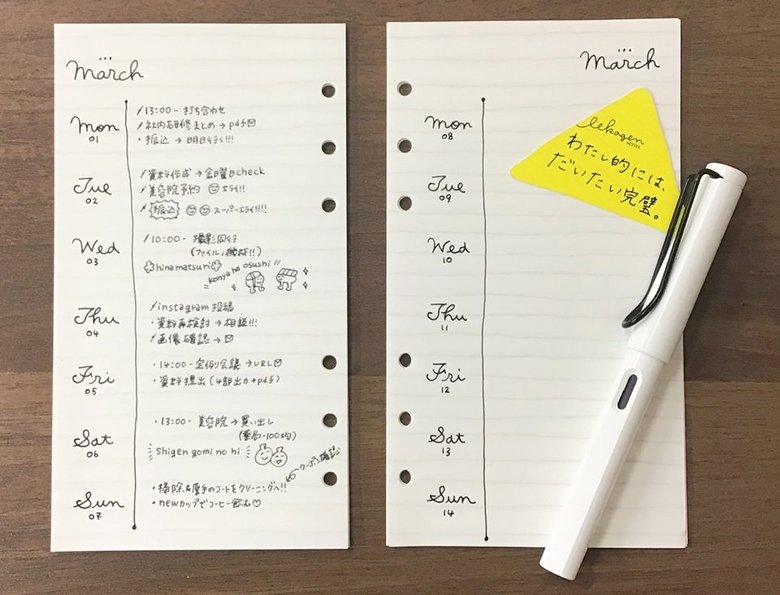 march
Mon
01
/13:00- 打ち合わせ
/社内研修まとめ→pdf
・振込→明日行く!!!
Tue
02
/資料作成→金曜日check
/美容院予約 エライ!!
/振込 スーパーエライ!!!!
Wed
03
/10:00- 撮影同行
(ファイル,機材!!)
hinamatsuri
konya ha osushi
Thu
04
/instagram投稿
・資料再検討→相談!!!
/画像確認→
Fri
05
・14:00-定例会議→URL
・資料提出(4部出力+pdf)
Sat
06
・13:00-美容院→買い出し
(薬局・100均)
shigen gomi no hi
クーポン確認
Sun
07
・掃除&厚手のコートをクリーニングへ!!
・newカップでコーヒー飲む♡
march
Mon
08
Tue
09
Wed
10
Thu
11
Fri
12
Sat
13
Sun
14
lekagen
series
わたし的には、
だいたい完璧。